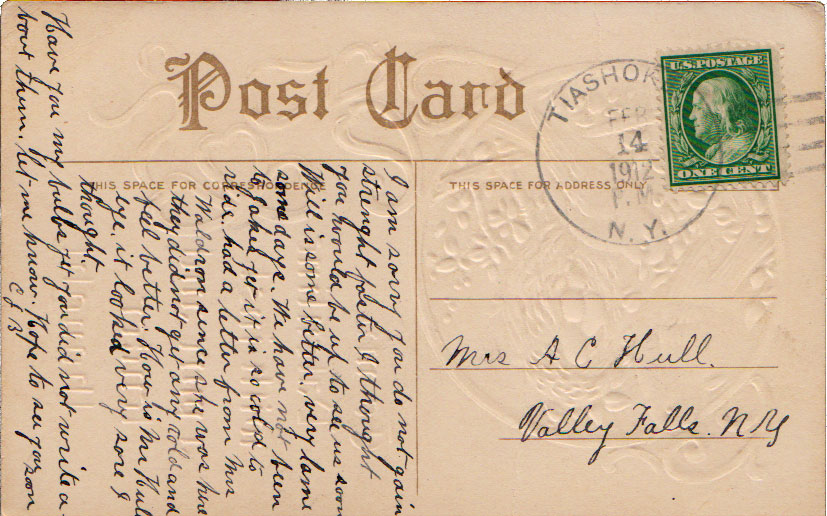 Post Card
TIASHOK
FEB
14
1912
P.M.
N.Y.
U.S. POSTAGE
ONE CENT
THIS SPACE FOR CORRESPONDENCE
THIS SPACE FOR ADDRESS ONLY
Mrs A C Hull.
Valley Falls. N Y
I am sorry you do not gain
strenght faster I thought
you would be up to see us soon
Will is some better. very lame
some days. We have not been
to Jakes yet it is so cold to
ride. had a letter from Mrs
Waldron since she was here
they did not get any cold and
feel better. How is Mr Hull
eye, it looked very sore I
thought.
Have you my bulbs yet you did not write a-
bout them. let me know. Hope to see you soon
C J B